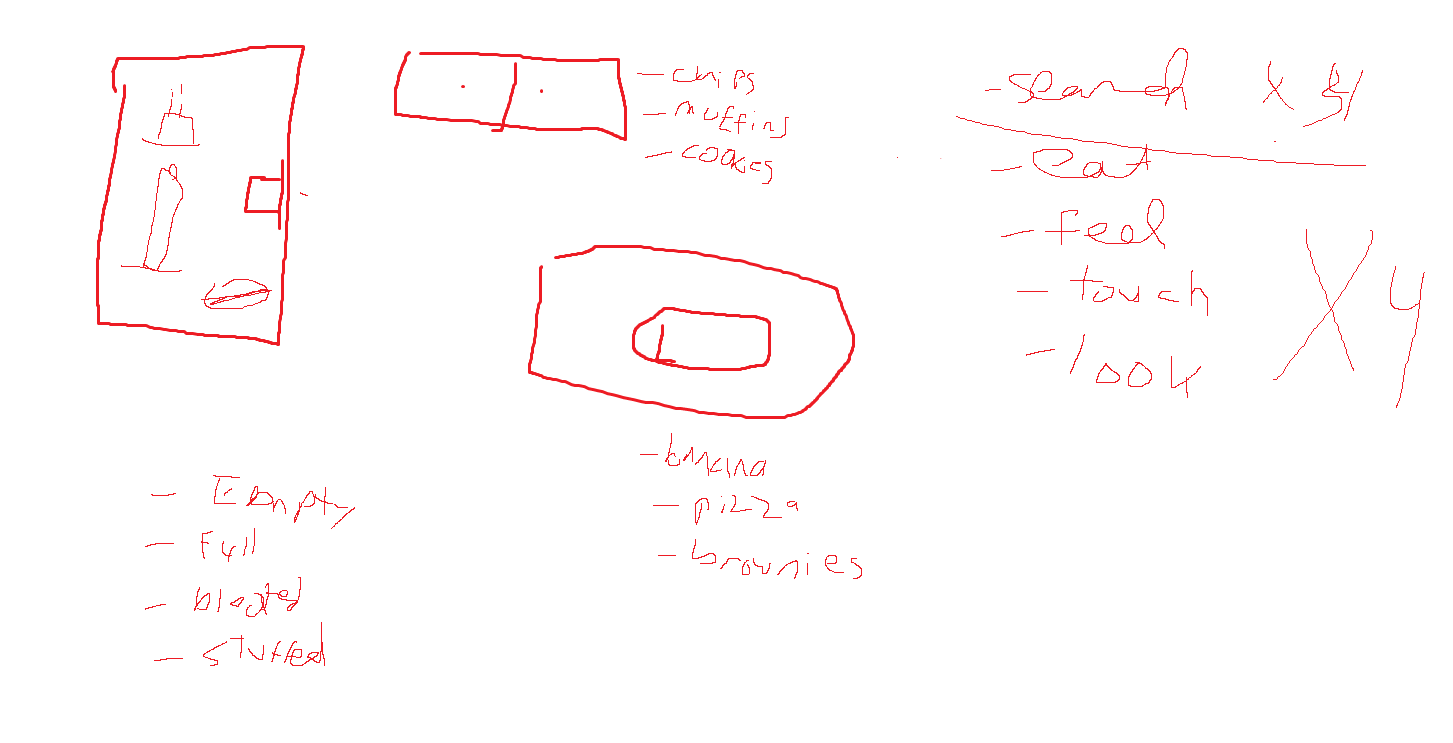 - chips
- muffins
- cookies
- search x 3/
- eat
- feel
- touch
- look
X4
- banana
- pizza
- brownies
- Empty
- Full
- bloated
- stuffed